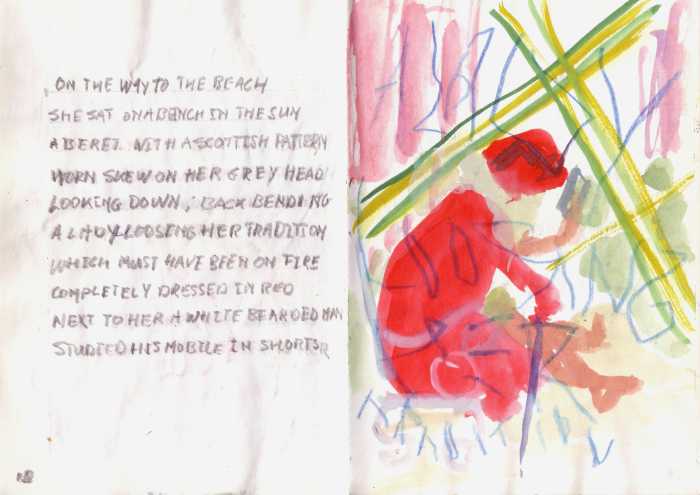 ON THE WAY TO THE BEACH
SHE SAT ON A BENCH IN THE SUN
A BERET WITH A SCOTTISH PATTERN
WORN SKEW ON HER GREY HEAD
LOOKING DOWN, BACK BENDING
A LADY LOOSING HER TRADITION
WHICH MUST HAVE BEEN ON FIRE
COMPLETELY DRESSED IN RED
NEXT TO HER A WHITE BEARDED MAN
STUDIED HIS MOBILE IN SHORTS